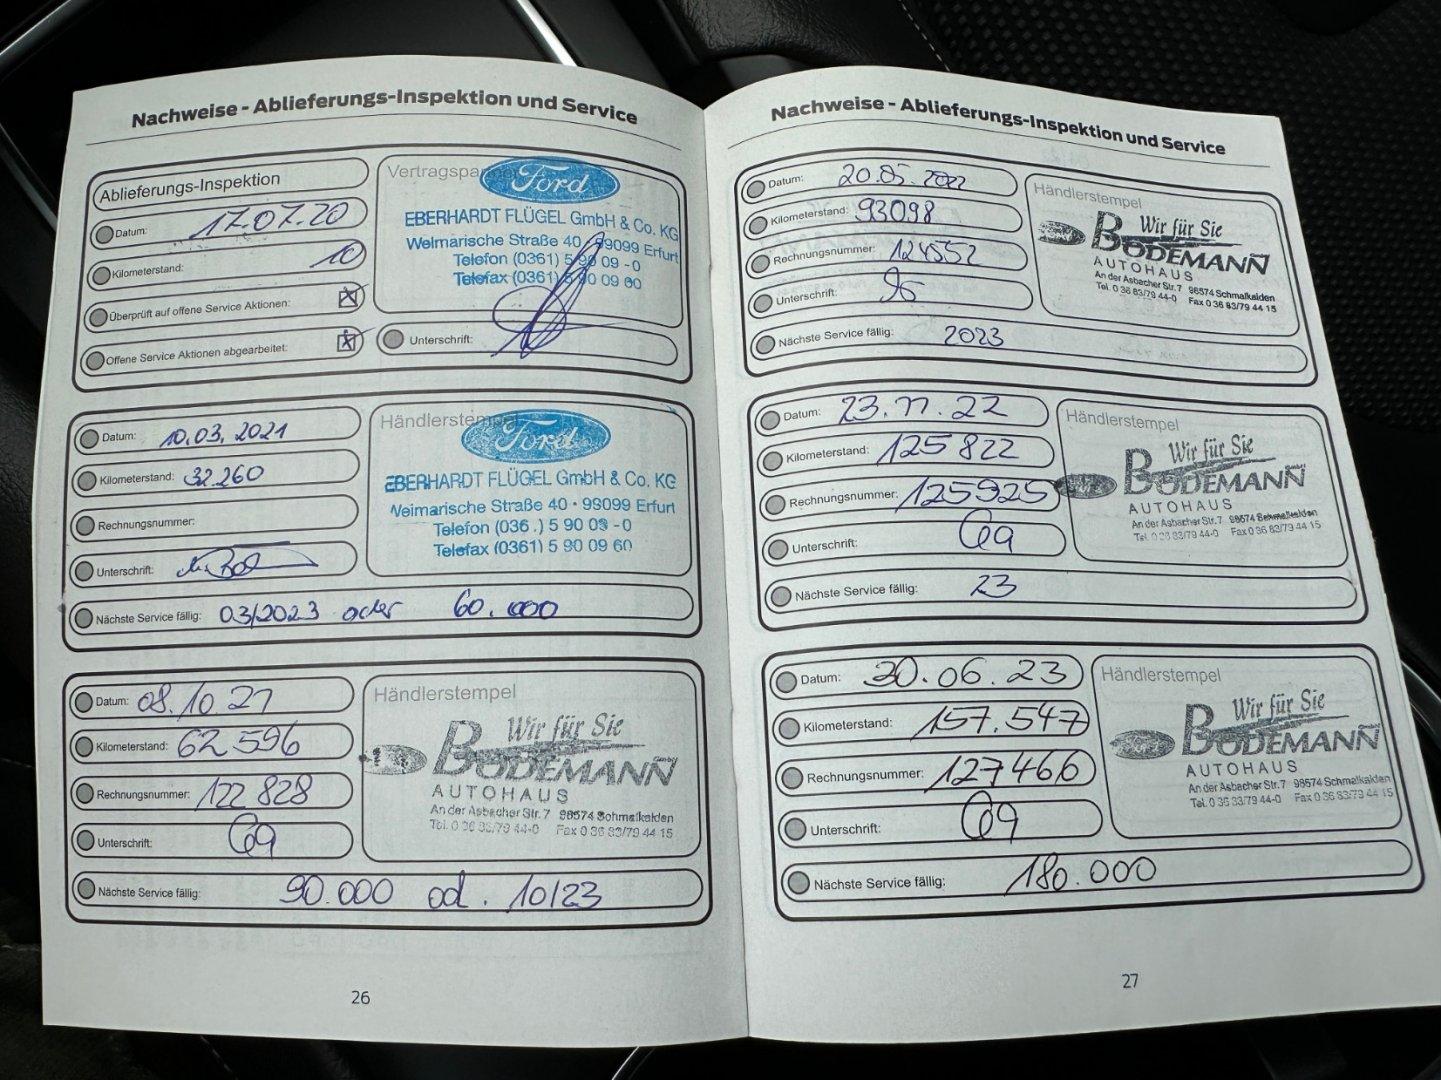 Nachweise - Ablieferungs-Inspektion und Service
Ablieferungs-Inspektion
Datum: 17.07.20
Kilometerstand: 10
Überprüft auf offene Service Aktionen:
Offene Service Aktionen abgearbeitet:
Vertragspartner
Ford
EBERHARDT FLÜGEL GmbH & Co. KG
Weimarische Straße 40 99099 Erfurt
Telefon (0361) 5 90 09 -0
Telefax (0361) 5 90 09 60
Unterschrift:
Datum: 10.03.2021
Kilometerstand: 32.260
Rechnungsnummer:
Unterschrift:
Händlerstempel
Ford
EBERHARDT FLÜGEL GmbH & Co. KG
Weimarische Straße 40 · 99099 Erfurt
Telefon (036.) 5 90 09 -0
Telefax (0361) 5 90 09 60
Nächste Service fällig: 03/2023 oder 60.000
Datum: 08.10 21
Kilometerstand: 62 596
Rechnungsnummer: 122 828
Unterschrift:
Händlerstempel
Wir für Sie
BODEMANN
AUTOHAUS
An der Asbacher Str. 7 98574 Schmalkalden
Tel. 0 36 83/79 44-0 Fax 0 36 83/79 44 15
Nächste Service fällig: 90.000 od. 10/23
26
Nachweise - Ablieferungs-Inspektion und Service
Datum: 20.05.2022
Kilometerstand: 93098
Rechnungsnummer: 124552
Unterschrift:
Händlerstempel
Wir für Sie
BODEMANN
AUTOHAUS
An der Asbacher Str. 7 98574 Schmalkalden
Tel. 0 36 83/79 44-0 Fax 0 36 83/79 44 15
Nächste Service fällig: 2023
Datum: 23.11.22
Kilometerstand: 125 822
Rechnungsnummer: 125925
Unterschrift:
Händlerstempel
Wir für Sie
BODEMANN
AUTOHAUS
An der Asbacher Str. 7 98574 Schmalkalden
Tel. 0 36 83/79 44-0 Fax 0 36 83/79 44 15
Nächste Service fällig: 23
Datum: 30.06.23
Kilometerstand: 157.547
Rechnungsnummer: 127466
Unterschrift:
Händlerstempel
Wir für Sie
BODEMANN
AUTOHAUS
An der Asbacher Str. 7 98574 Schmalkalden
Tel. 0 36 83/79 44-0 Fax 0 36 83/79 44 15
Nächste Service fällig: 180.000
27